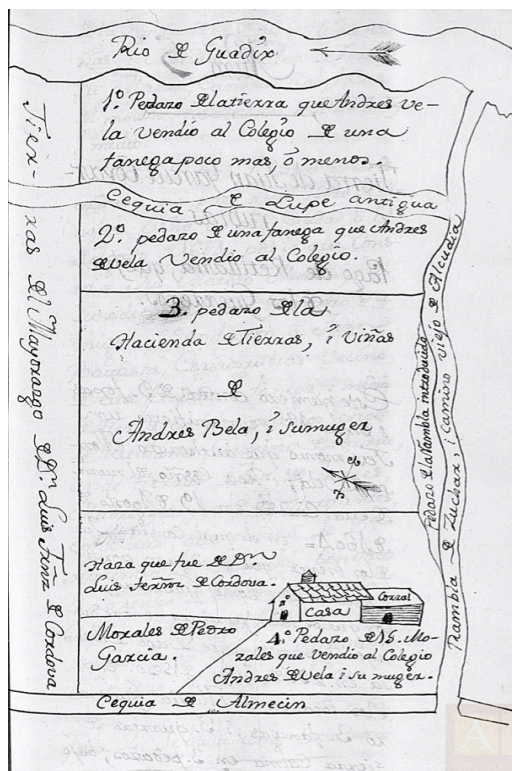 Rio de Guadix
1.º Pedazo de la tierra que Andres Ve-
la vendió al Colegio de una
fanega poco mas, ó menos.
Cequia de Lupe antigua
2.º pedazo de una fanega que Andres
de Vela Vendió al Colegio.
3. pedazo de la
Hacienda de Tierras, i Viñas
de
Andres Bela, i su muger
Haza que fue de Dⁿ
Luis ferñz de Cordova.
Casa
Corral
Morales de Pedro
Garcia.
4.º Pedazo de 15. Mo-
rales que vendio al Colegio
Andres de Vela i su muger.
Cequia de Almecin
Tier-
ras del Mayorazgo de Dⁿ Luis Fernz de Cordova
Pedazo de la Rambla introducido
Rambla de Zuchar, i camino viejo de Alcudia
A